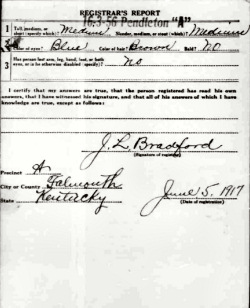 REGISTRAR'S REPORT
16-3-56 Pendleton "A"
1 Tall, medium, or short (specify which)? Medium Slender, medium, or stout (which)? Medium
2 Color of eyes? Blue Color of hair? Brown Bald? NO
3 Has person lost arm, leg, hand, foot, or both eyes, or is he otherwise disabled (specify)? No
I certify that my answers are true, that the person registered has read his own answers, that I have witnessed his signature, and that all of his answers of which I have knowledge are true, except as follows:
J. L. Bradford
(Signature of registrar)
Precinct A
City or County Falmouth
State Kentucky
June 5, 1917
(Date of registration)